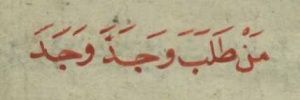 مَنْ طَلَبَ وَجَدَّ وَجَدَ